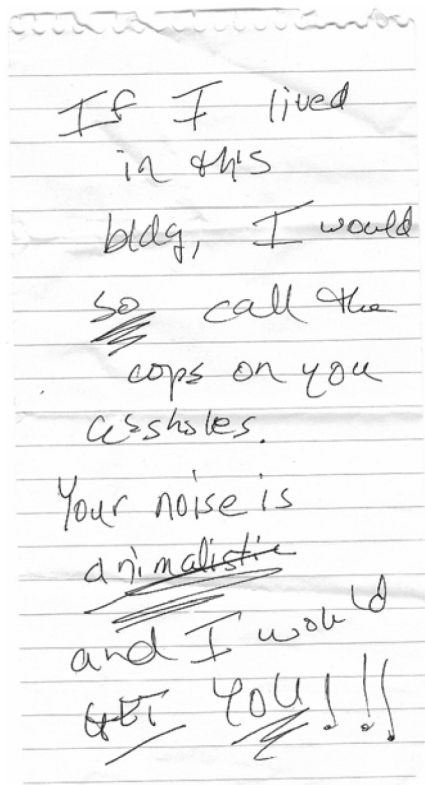 If I lived
in this
bldg, I would
so call the
cops on you
assholes.
Your noise is
animalistic
and I would
GET YOU!!!